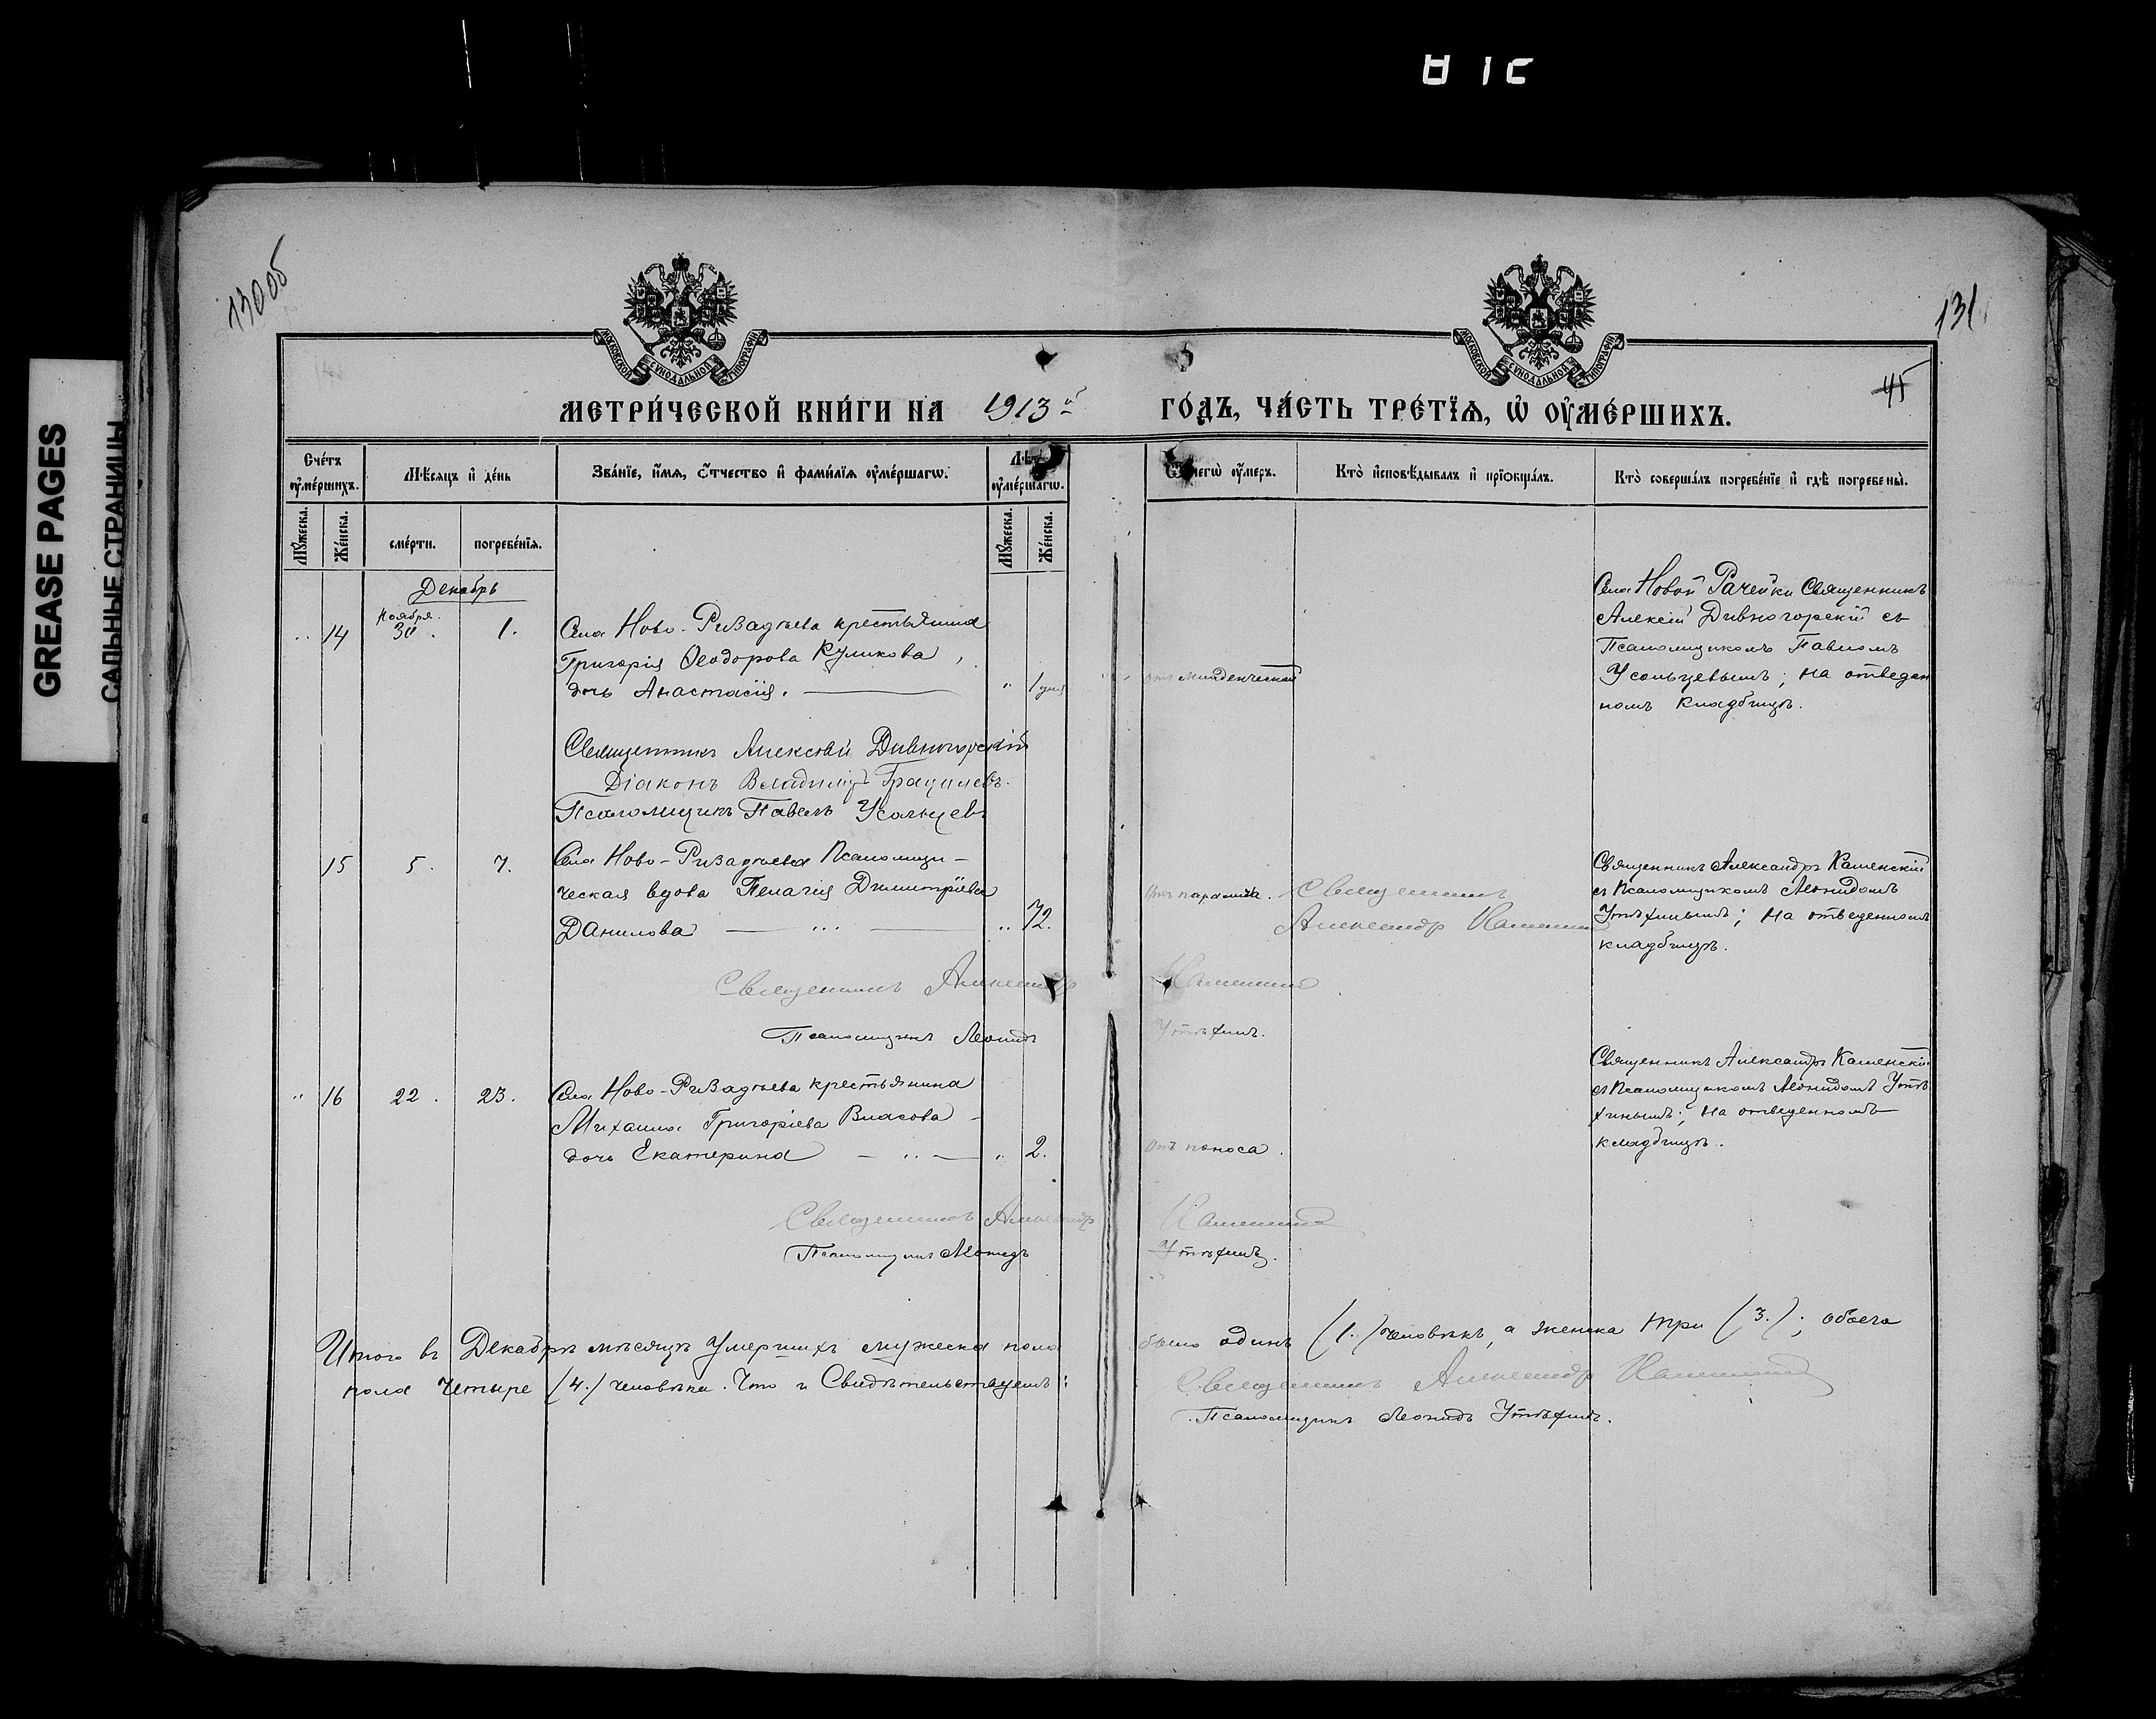 GREASE PAGES
САЛЬНЫЕ СТРАНИЦЫ
130об
131
45
МОСКОВСКОЙ СѴНОДАЛЬНОЙ ТИПОГРАФІИ
МОСКОВСКОЙ СѴНОДАЛЬНОЙ ТИПОГРАФІИ
МЕТРИ́ЧЕСКОЙ КНИ́ГИ НА 1913й ГО́ДЪ, ЧА́СТЬ ТРЕ́ТЇѦ, Ѡ҆ ОУ҆МЕ́РШИХЪ.
Сче́тъ оу҆ме́ршихъ.
Мѣ́сяцъ и҆ де́нь
Зва́нїе, и҆́мя, ѻ҆́тчество и҆ фами́лїя оу҆ме́ршагѡ.
Лѣ́та оу҆ме́ршагѡ.
Ѿ чегѡ̀ оу҆́меръ.
Кто̀ и҆сповѣ́дывалъ и҆ прїѻбща́лъ.
Кто̀ соверша́лъ погребе́нїе и҆ гдѣ̀ погребены̀.
Мꙋ́жеска.
Же́нска.
сме́рти.
погребе́нїя.
Мꙋ́жеска.
Же́нска.
Декабрь
14
Ноября.
30.
1.
Села Ново-Ризадѣева крестьянина
Григорія Ѳеодорова Куликова,
дочь Анастасія.
1 дня
отъ младенческой
Села Новой Рачейки Священникъ
Алексій Дивногорскій съ
Псаломщикомъ Павломъ
Усольцевымъ; на отведен
номъ кладбищѣ.
Священникъ Алексѣй Дивногорскій
Діаконъ Владиміръ Грацилевъ.
Псаломщикъ Павелъ Усольцевъ
15
5.
7.
Села Ново-Ризадѣева Псаломщи-
ческая вдова Пелагія Димитріева
Данилова
72.
отъ паралича.
Священникъ
Александр
Священникъ Александръ Каменскій
съ Псаломщикомъ Леонидомъ
Утѣхинымъ; на отведенномъ
кладбищѣ.
Священникъ Александр
Псаломщикъ Леонидъ Утѣхинъ.
16
22.
23.
Села Ново-Ризадѣева крестьянина
Михаила Григоріева Власова
дочь Екатерина
2.
отъ поноса.
Священникъ Александръ Каменскій
съ Псаломщикомъ Леонидомъ Утѣ
хинымъ; на отведенномъ
кладбищѣ.
Священникъ Александр
Псаломщикъ Леонидъ Утѣхинъ.
Итого въ Декабрѣ мѣсяцѣ умершихъ мужеска пола было одинъ (1.) человѣкъ, а женска три (3.); обоего
пола четыре (4.) человѣка. Что и Свидѣтельствуемъ:
Священникъ Александр
Псаломщикъ Леонидъ Утѣхинъ.